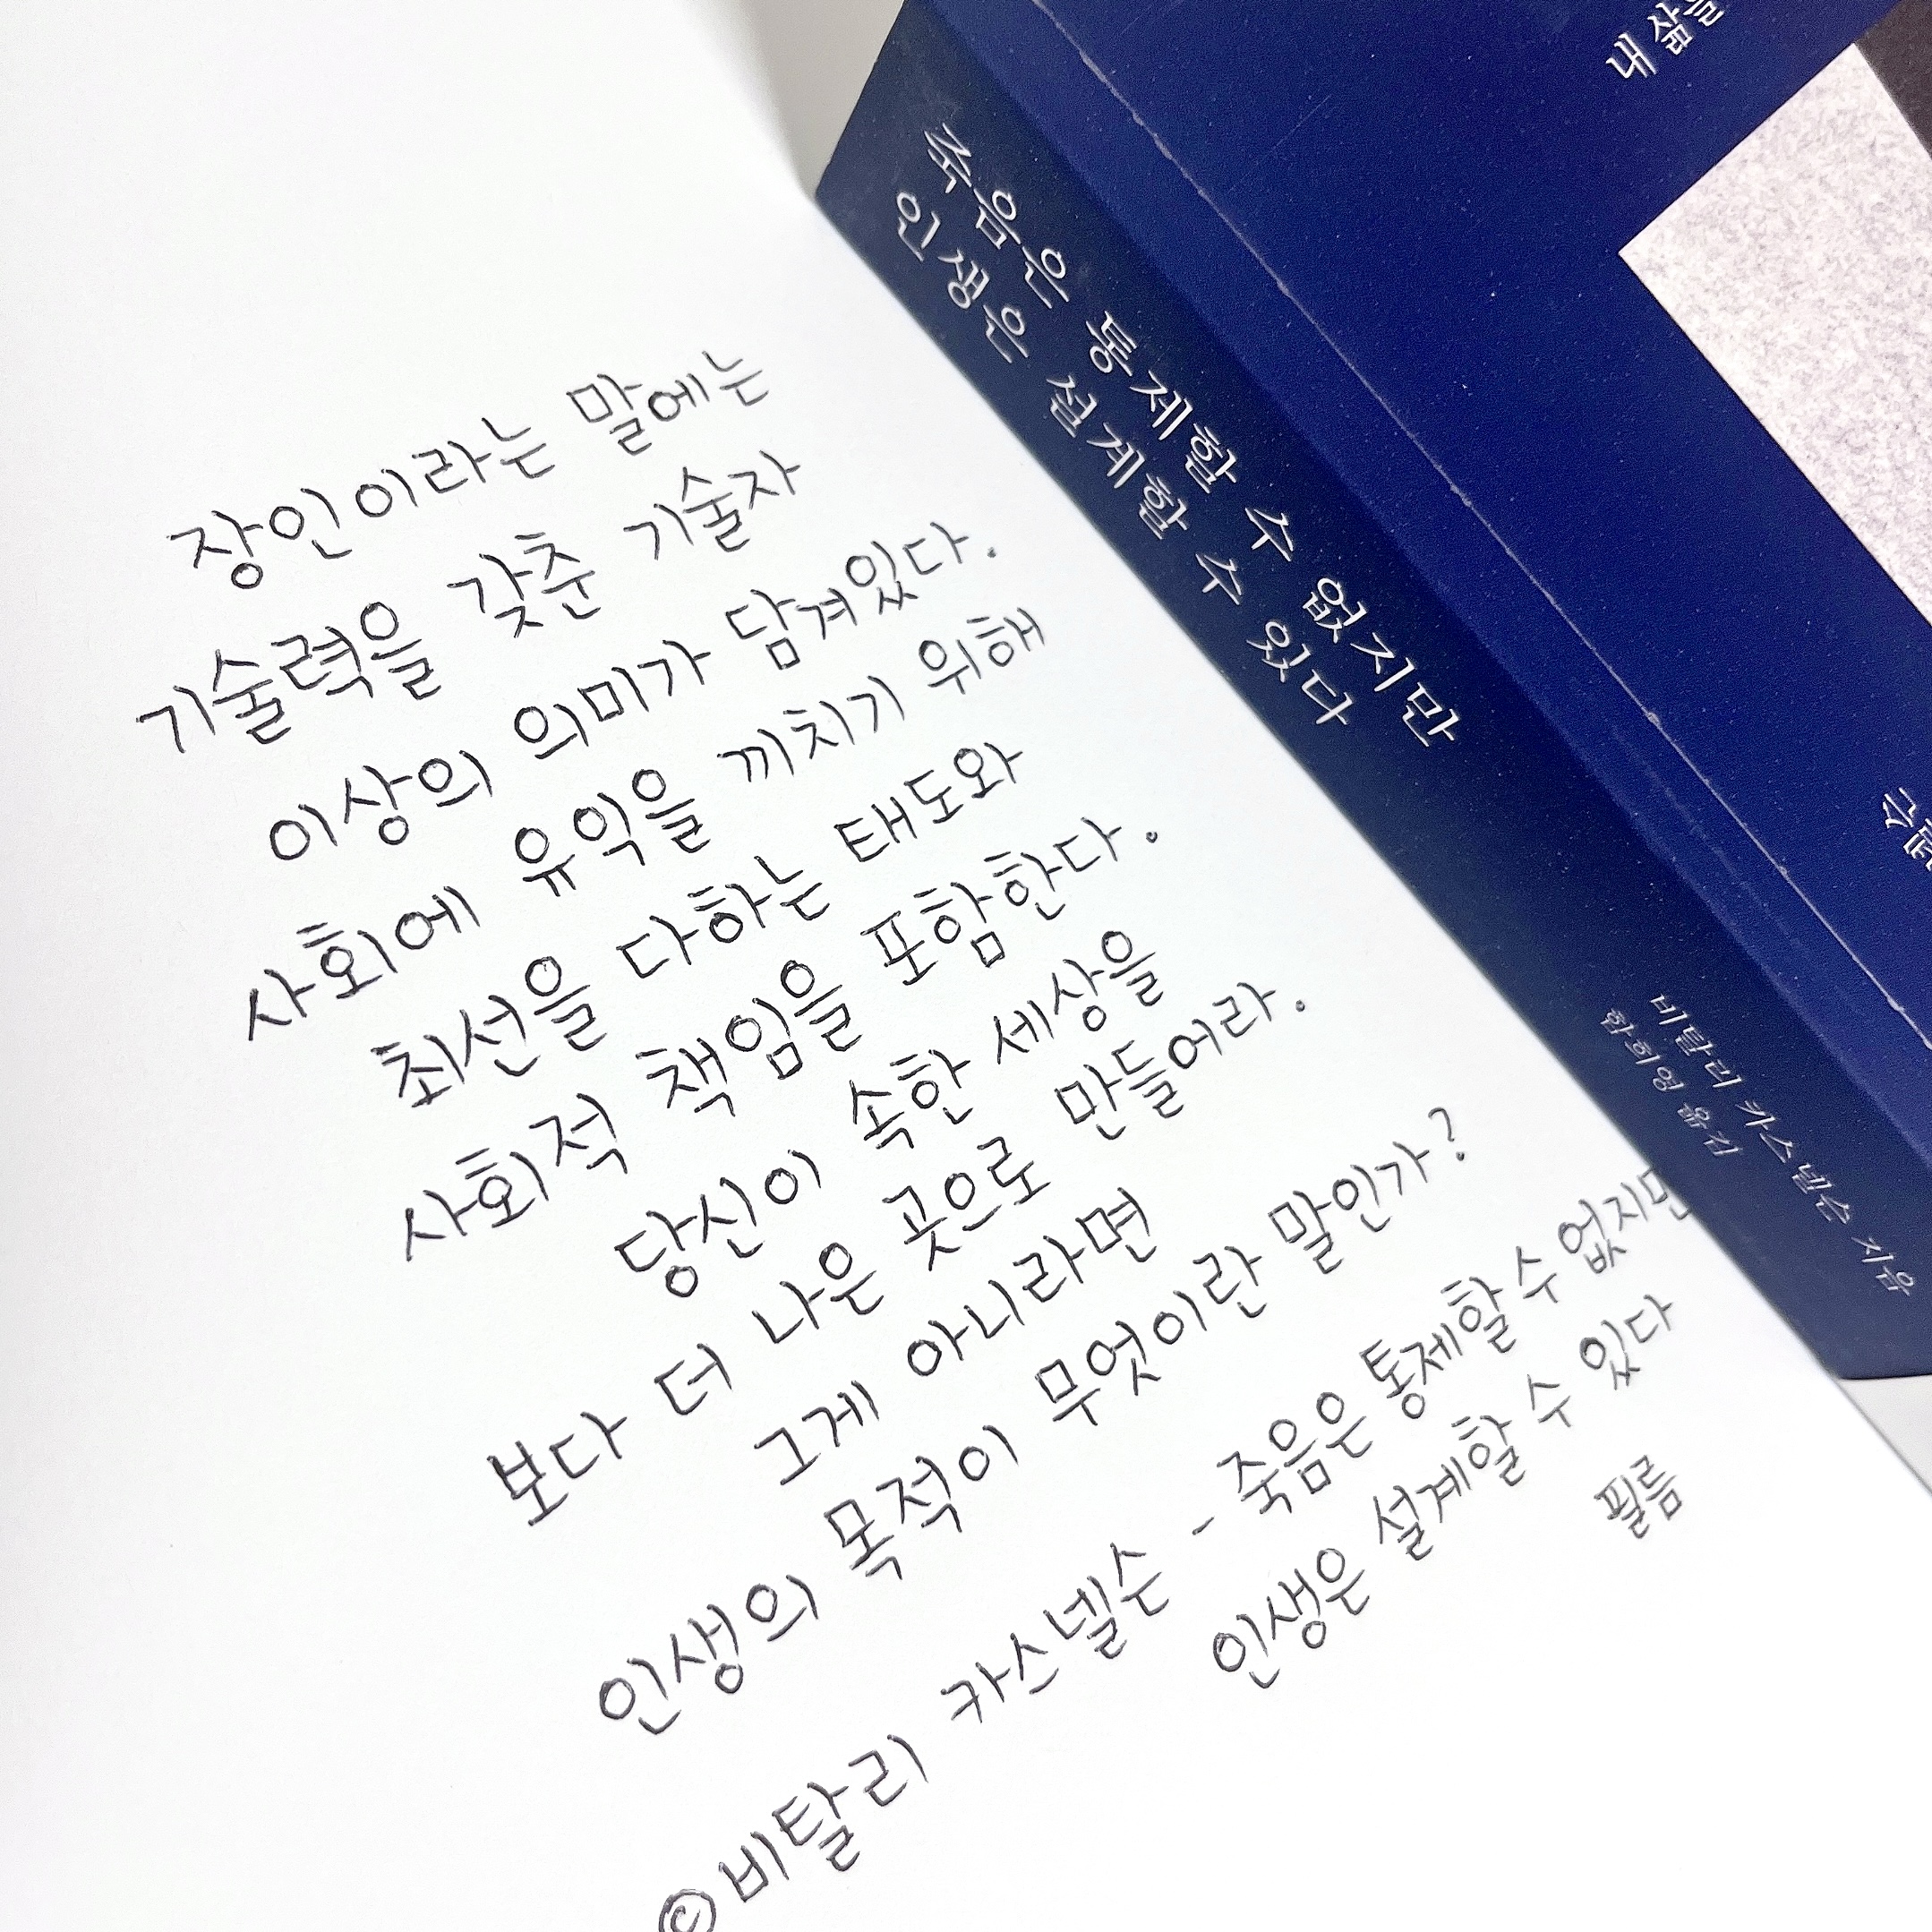 장인이라는 말에는
기술력을 갖춘 기술자
이상의 의미가 담겨있다.
사회에 유익을 끼치기 위해
최선을 다하는 태도와
사회적 책임을 포함한다.
당신이 속한 세상을
보다 더 나은 곳으로 만들어라.
그게 아니라면
인생의 목적이 무엇이란 말인가?
©비탈리 카스넬슨 - 죽음은 통제할 수 없지만
인생은 설계할 수 있다
필름
죽음은 통제할 수 없지만
인생은 설계할 수 있다
비탈리 카스넬슨 지음
함희영 옮김
내 삶을